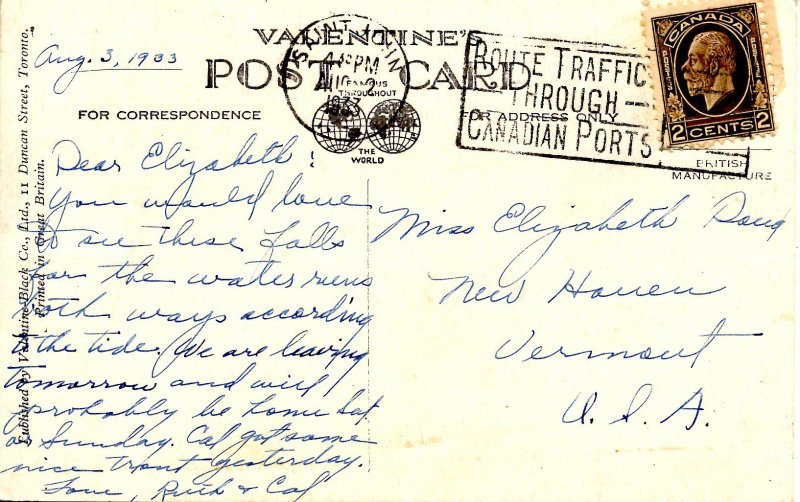 VALENTINE'S
POST CARD
FAMOUS
THROUGHOUT
THE
WORLD
FOR CORRESPONDENCE
FOR ADDRESS ONLY
BRITISH
MANUFACTURE
PM
2
1933
ROUTE TRAFFIC
THROUGH
CANADIAN PORTS
CANADA
2 CENTS 2
Published by Valentine-Black Co., Ltd., 11 Duncan Street, Toronto.
Printed in Great Britain.
Aug. 3, 1933
Dear Elizabeth!
You would love
to see these falls
for the water runs
both ways according
to the tide. We are leaving
tomorrow and will
probably be home Sat
or Sunday. Cal got some
nice trout yesterday.
Love, Ruth & Cal
Miss Elizabeth
New Haven
Vermont
U. S. A.